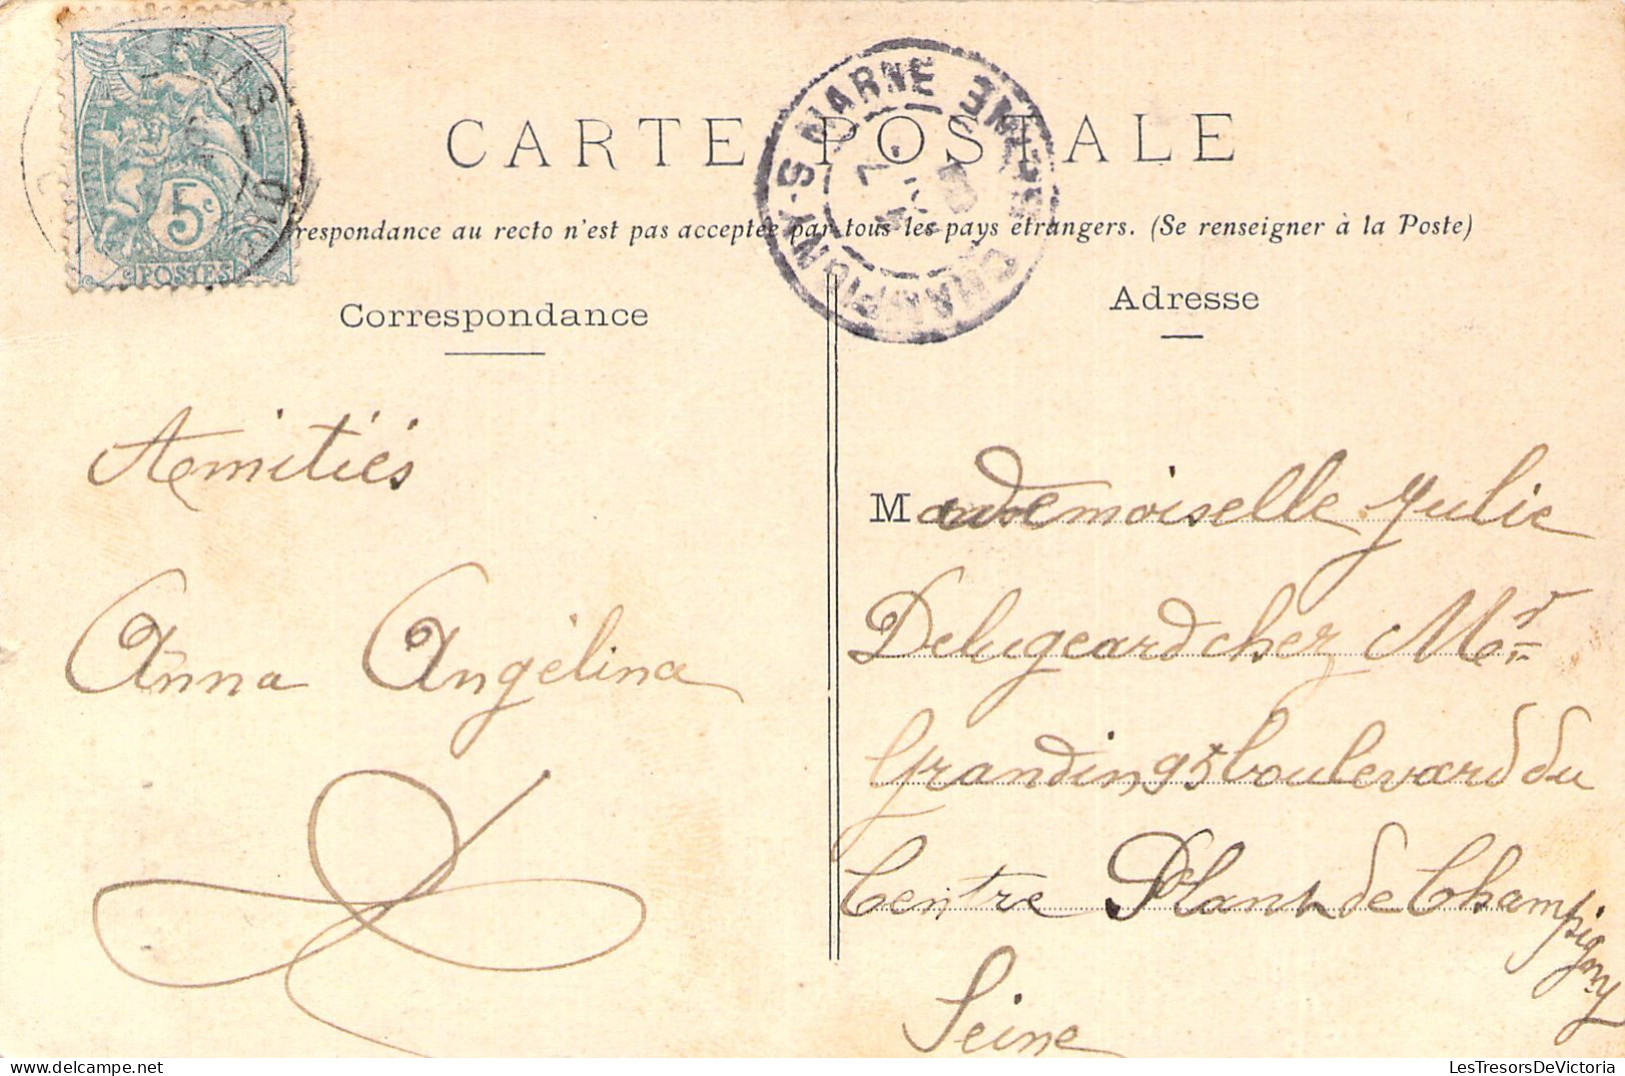 CARTE POSTALE
respondance au recto n'est pas acceptée par tous les pays étrangers. (Se renseigner à la Poste)
5c
POSTES
CHAMPIGNY-S-MARNE
SEINE
Correspondance
Amitiés
Anna Angélina
Adresse
Mademoiselle Julie
Delugeard chez Mer
Grandin 95 boulevard du
Centre Plant de Champigny
Seine
LesTresorsDeVictoria